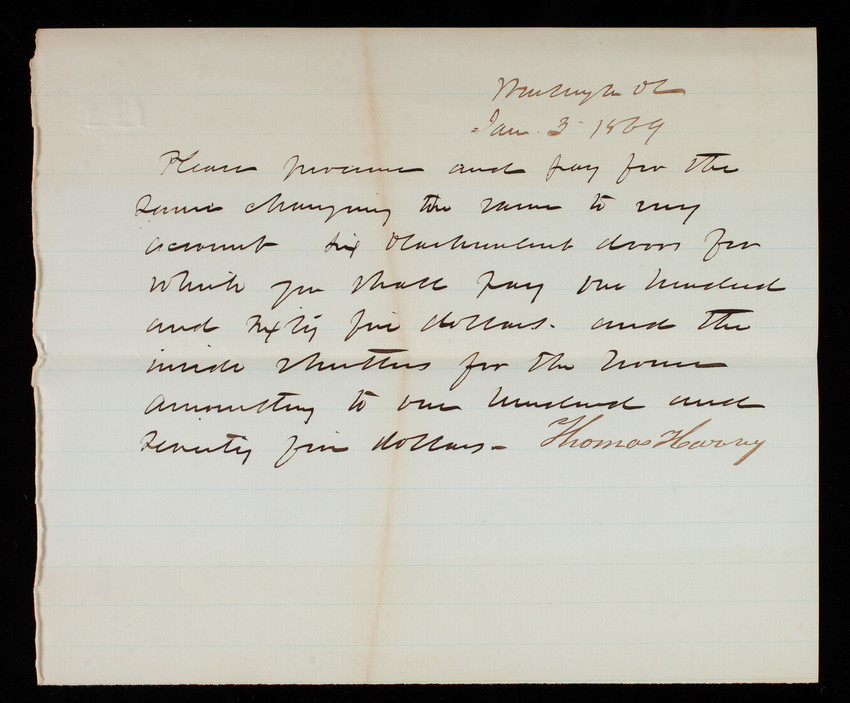 Washington DC
Jan. 3 1869
Please procure and pay for the
same charging the same to my
account six blackwalnut doors for
which you shall pay one hundred
and sixty five dollars. and the
inside shutters for the house
amounting to one hundred and
seventy five dollars—
Thomas Harvey